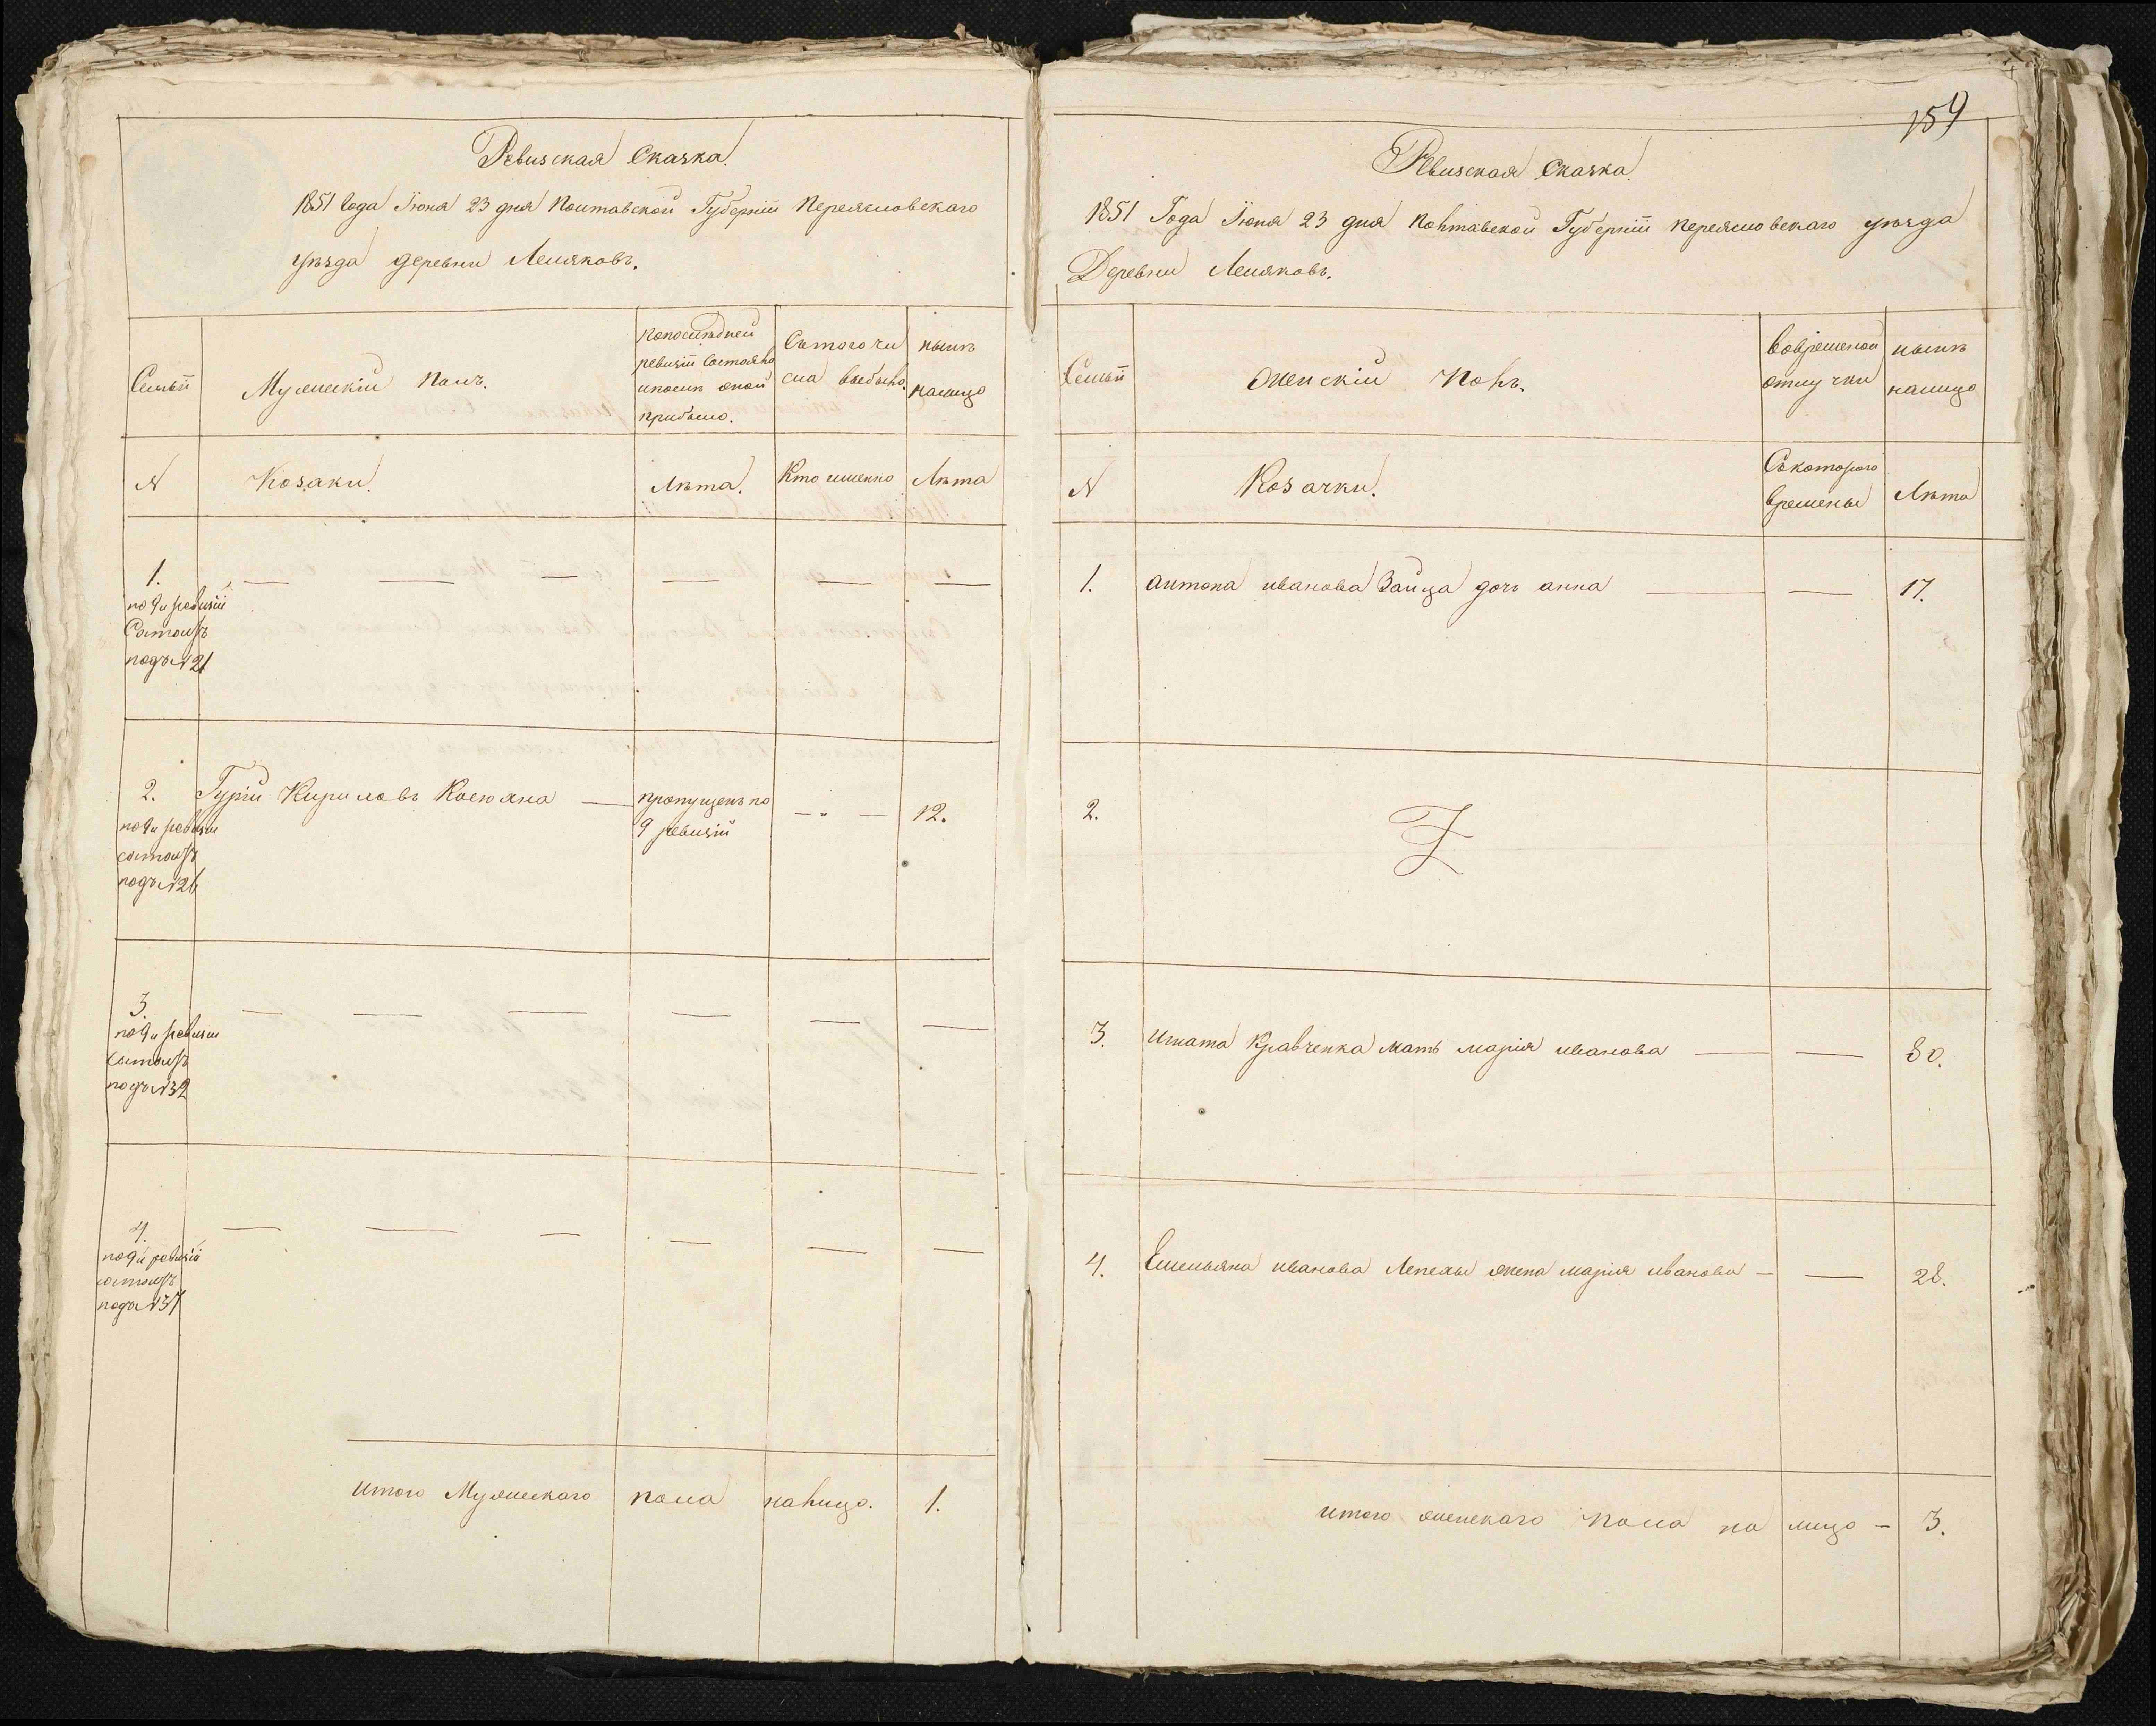 Ревизская Сказка.
1851 года Іюня 23 дня Полтавской Губерніи Переясловскаго
уѣзда деревни Лемяковъ.
Семьи
Мужескій полъ.
Попослѣдней
ревизіи состояло
ипослѣ оной
прибыло.
Сътого чи
сла выбыло.
нынѣ
налицо
№
Козаки.
Лѣта.
Кто именно
Лѣта
1.
по 9й ревизіи
Состоитъ
подъ №21
— — — — — —
2.
по 9й ревизіи
состоитъ
подъ №26
Гурій Кириловъ Косюана —
пропущенъ по
9 ревизіи
— —
12.
3.
по 9й ревизіи
состоитъ
подъ №32
— — — — — —
4.
по 9й ревизіи
состоитъ
подъ №37
— — — — — —
итого Мужескаго пола налицо. 1.
159
Ревизская Сказка.
1851 Года Іюня 23 дня Полтавской Губерніи Переясловскаго уѣзда
Деревни Лемяковъ.
Семьи
Женскій Полъ.
Вовременой
отлучки
нынѣ
налицо
№
Козачки.
Съкоторого
времены
Лѣта
1. антона иванова Зайца дочь анна — — 17.
2.
3. Игната Кравченка мать марія иванова — — 80.
4. Емельяна иванова Лепехы жена марія иванова — — 28.
итого женскаго Пола на лицо — 3.